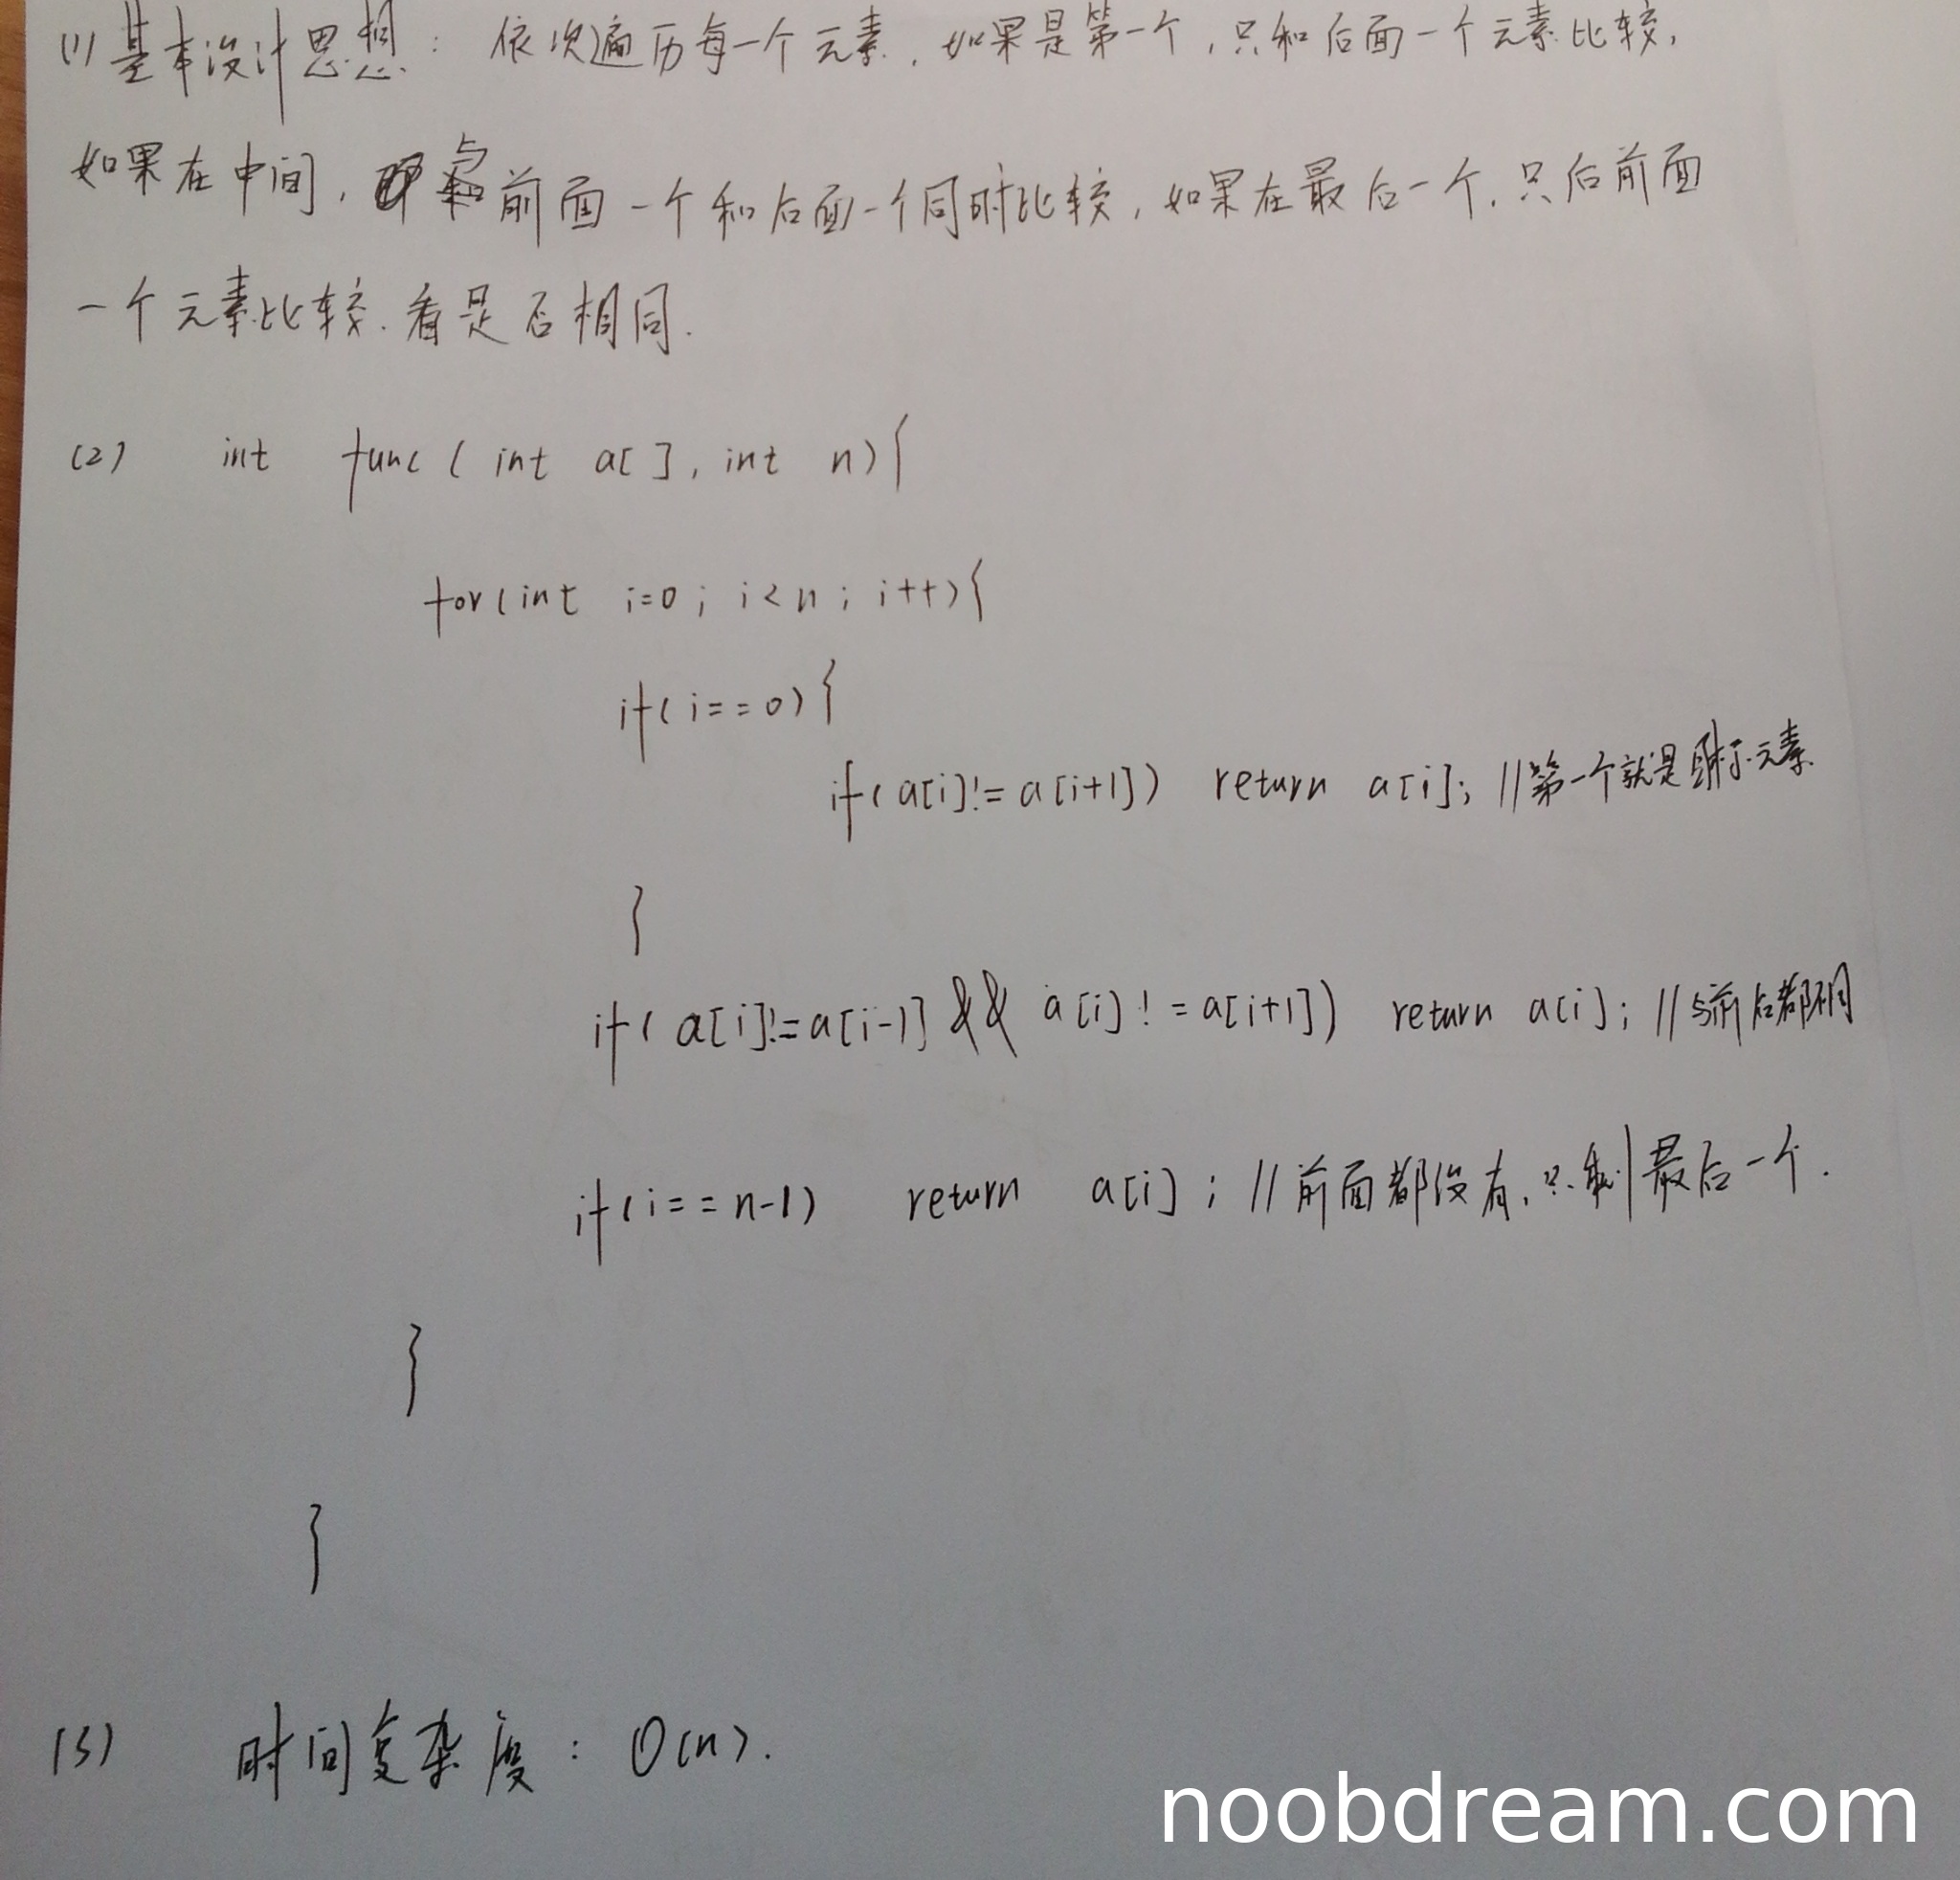 (1) 基本设计思想: 依次遍历每一个元素, 如果是第一个, 只和后面一个元素比较,
如果在中间, 与前面一个和后面一个同时比较, 如果在最后一个, 只后前面
一个元素比较. 看是否相同.
(2) int func ( int a[ ], int n) {
for(int i=0; i<n; i++) {
if( i==0) {
if( a[i]!= a[i+1]) return a[i]; //第一个就是 元素
}
if( a[i]!=a[i-1] && a[i] != a[i+1]) return a[i]; //与前后都不同
if(i==n-1) return a[i]; //前面都没有, 只剩最后一个.
}
}
(3) 时间复杂度: O(n).
noobdream.com